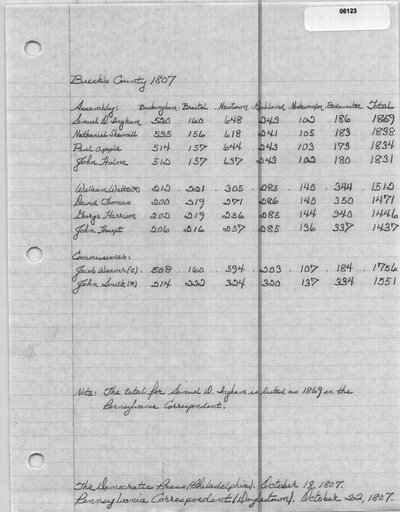 06123
Bucks County 1807
Assembly: Buckingham Bristol Newtown Richland Nockamixon Bedminster Total
Samuel D. Ingham 520 160 648 243 102 186 1859
Nathaniel Shewell 535 156 618 241 105 183 1838
Paul Apple 514 157 644 243 103 173 1834
John Hulme 512 157 637 243 102 180 1831
William Watts(R) 212 221 305 285 145 344 1512
David Thomas 200 219 271 286 145 350 1471
George Harrison 202 219 256 285 144 340 1446
John Houpt 206 216 257 285 136 337 1437
Commissioner:
Jacob Weaver(C) 508 160 594 203 107 184 1756
John Smith(R) 214 222 324 320 137 334 1551
Note: The total for Samuel D. Ingham is listed as 1869 in the
Pennsylvania Correspondent.
The Democratic Press (Philadelphia). October 19, 1807.
Pennsylvania Correspondent (Doylestown). October 202, 1807.